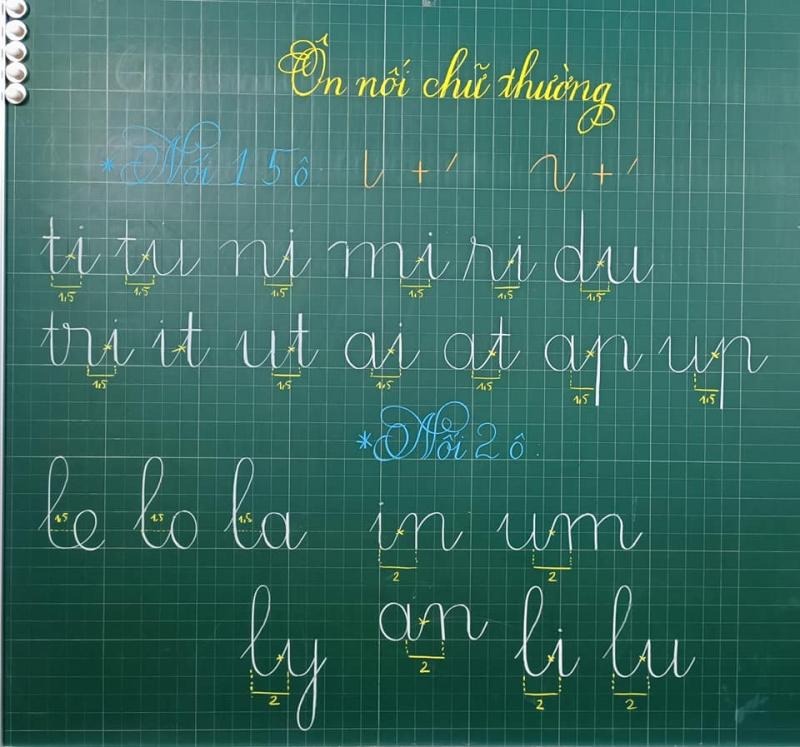 Ôn nối chữ thường
*Nối 1 5 ô: ι + ′ ɿ + ′
ti tu ni mi ri du
1,5 1,5 1,5 1,5 1,5 1,5
tri it ut ai at ap up
1,5 1,5 1,5 1,5 1,5 1,5
*Nối 2 ô:
le lo la in um
1,5 1,5 1,5 2 2
ly an li lu
2 2 2 2